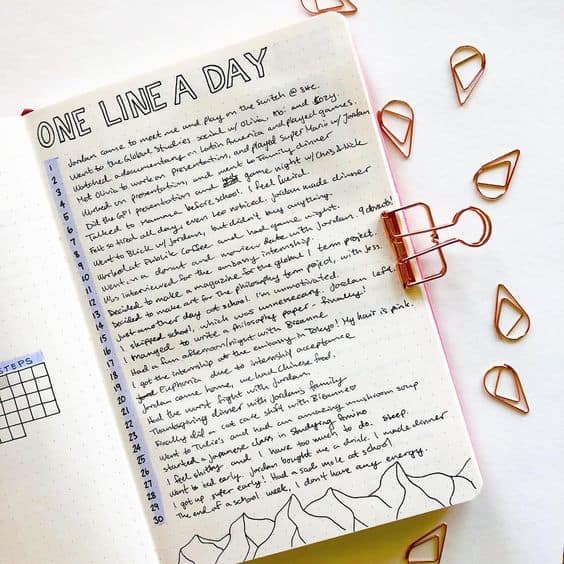 ONE LINE A DAY
1 Jordan came to meet me and play on the switch @ site.
2 Went to the Global Studies social w/ Olivia and cozy
3 Watched a documentary on Latin America and played games.
4 Met Olivia to work on presentation, and played Super Mario w/ Jordan
5 Worked on presentation, and went to Family dinner
6 Did the GPI presentation and game night w/ Chris & Nick
7 Talked to mamma before school. I feel weird.
8 Felt so tired all day, even Leo noticed. Jordan made dinner
9 Went to Blick w/ Jordan, but didn't buy anything.
10 Worked at Public Coffee and had game night.
11 Went on a donut and movie date with Jordan. 9 donuts!
12 Was interviewed for the embassy internship.
13 Decided to make a magazine for the global 1 term project.
14 Decided to make art for the philosophy term project, with Jess.
15 Just another day at school. I'm unmotivated.
16 I skipped school, which was unnecessary. Jordan left.
17 I managed to write a philosophy paper, finally.
18 Had a fun afternoon/night with Breanne
19 I got the internship at the embassy in Tokyo! My hair is pink.
20 Euphoria due to internship acceptance
21 Jordan came home, we had Chinese food.
22 Had the worst fight with Jordan.
23 Thanksgiving dinner with Jordans family
24 Finally did a cat cafe shift with Breanne♡
25 Went to Julie's and had an amazing mushroom soup
26 started a japanese class in
27 I feel shitty and I have too much to do.
28 Went to bed early. Jordan bought me a drink. I made dinner
29 I got up super early! Had a sad at school
30 The end of a school week, I don't have any energy.